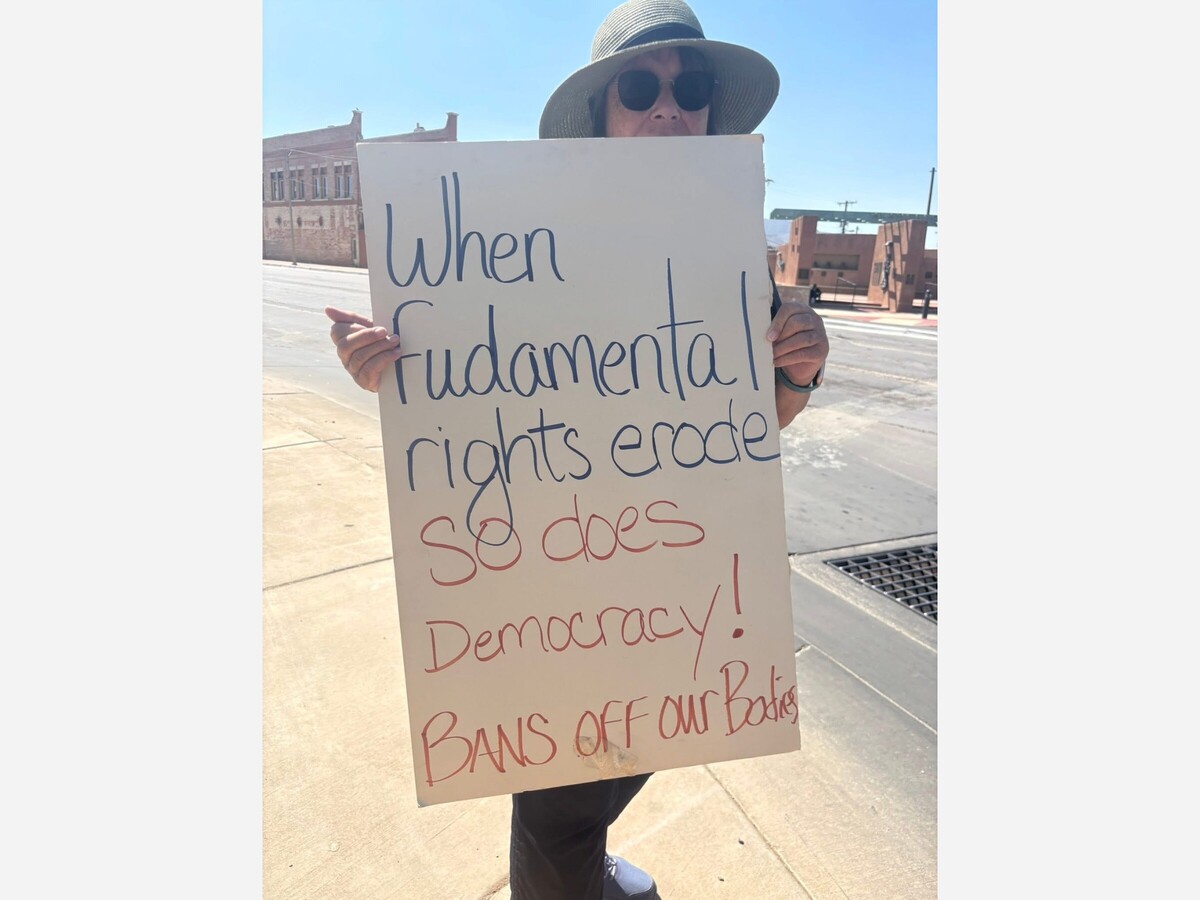 When
Fudamental
rights erode
So does
Democracy!
BANS OFF OUR Bodies